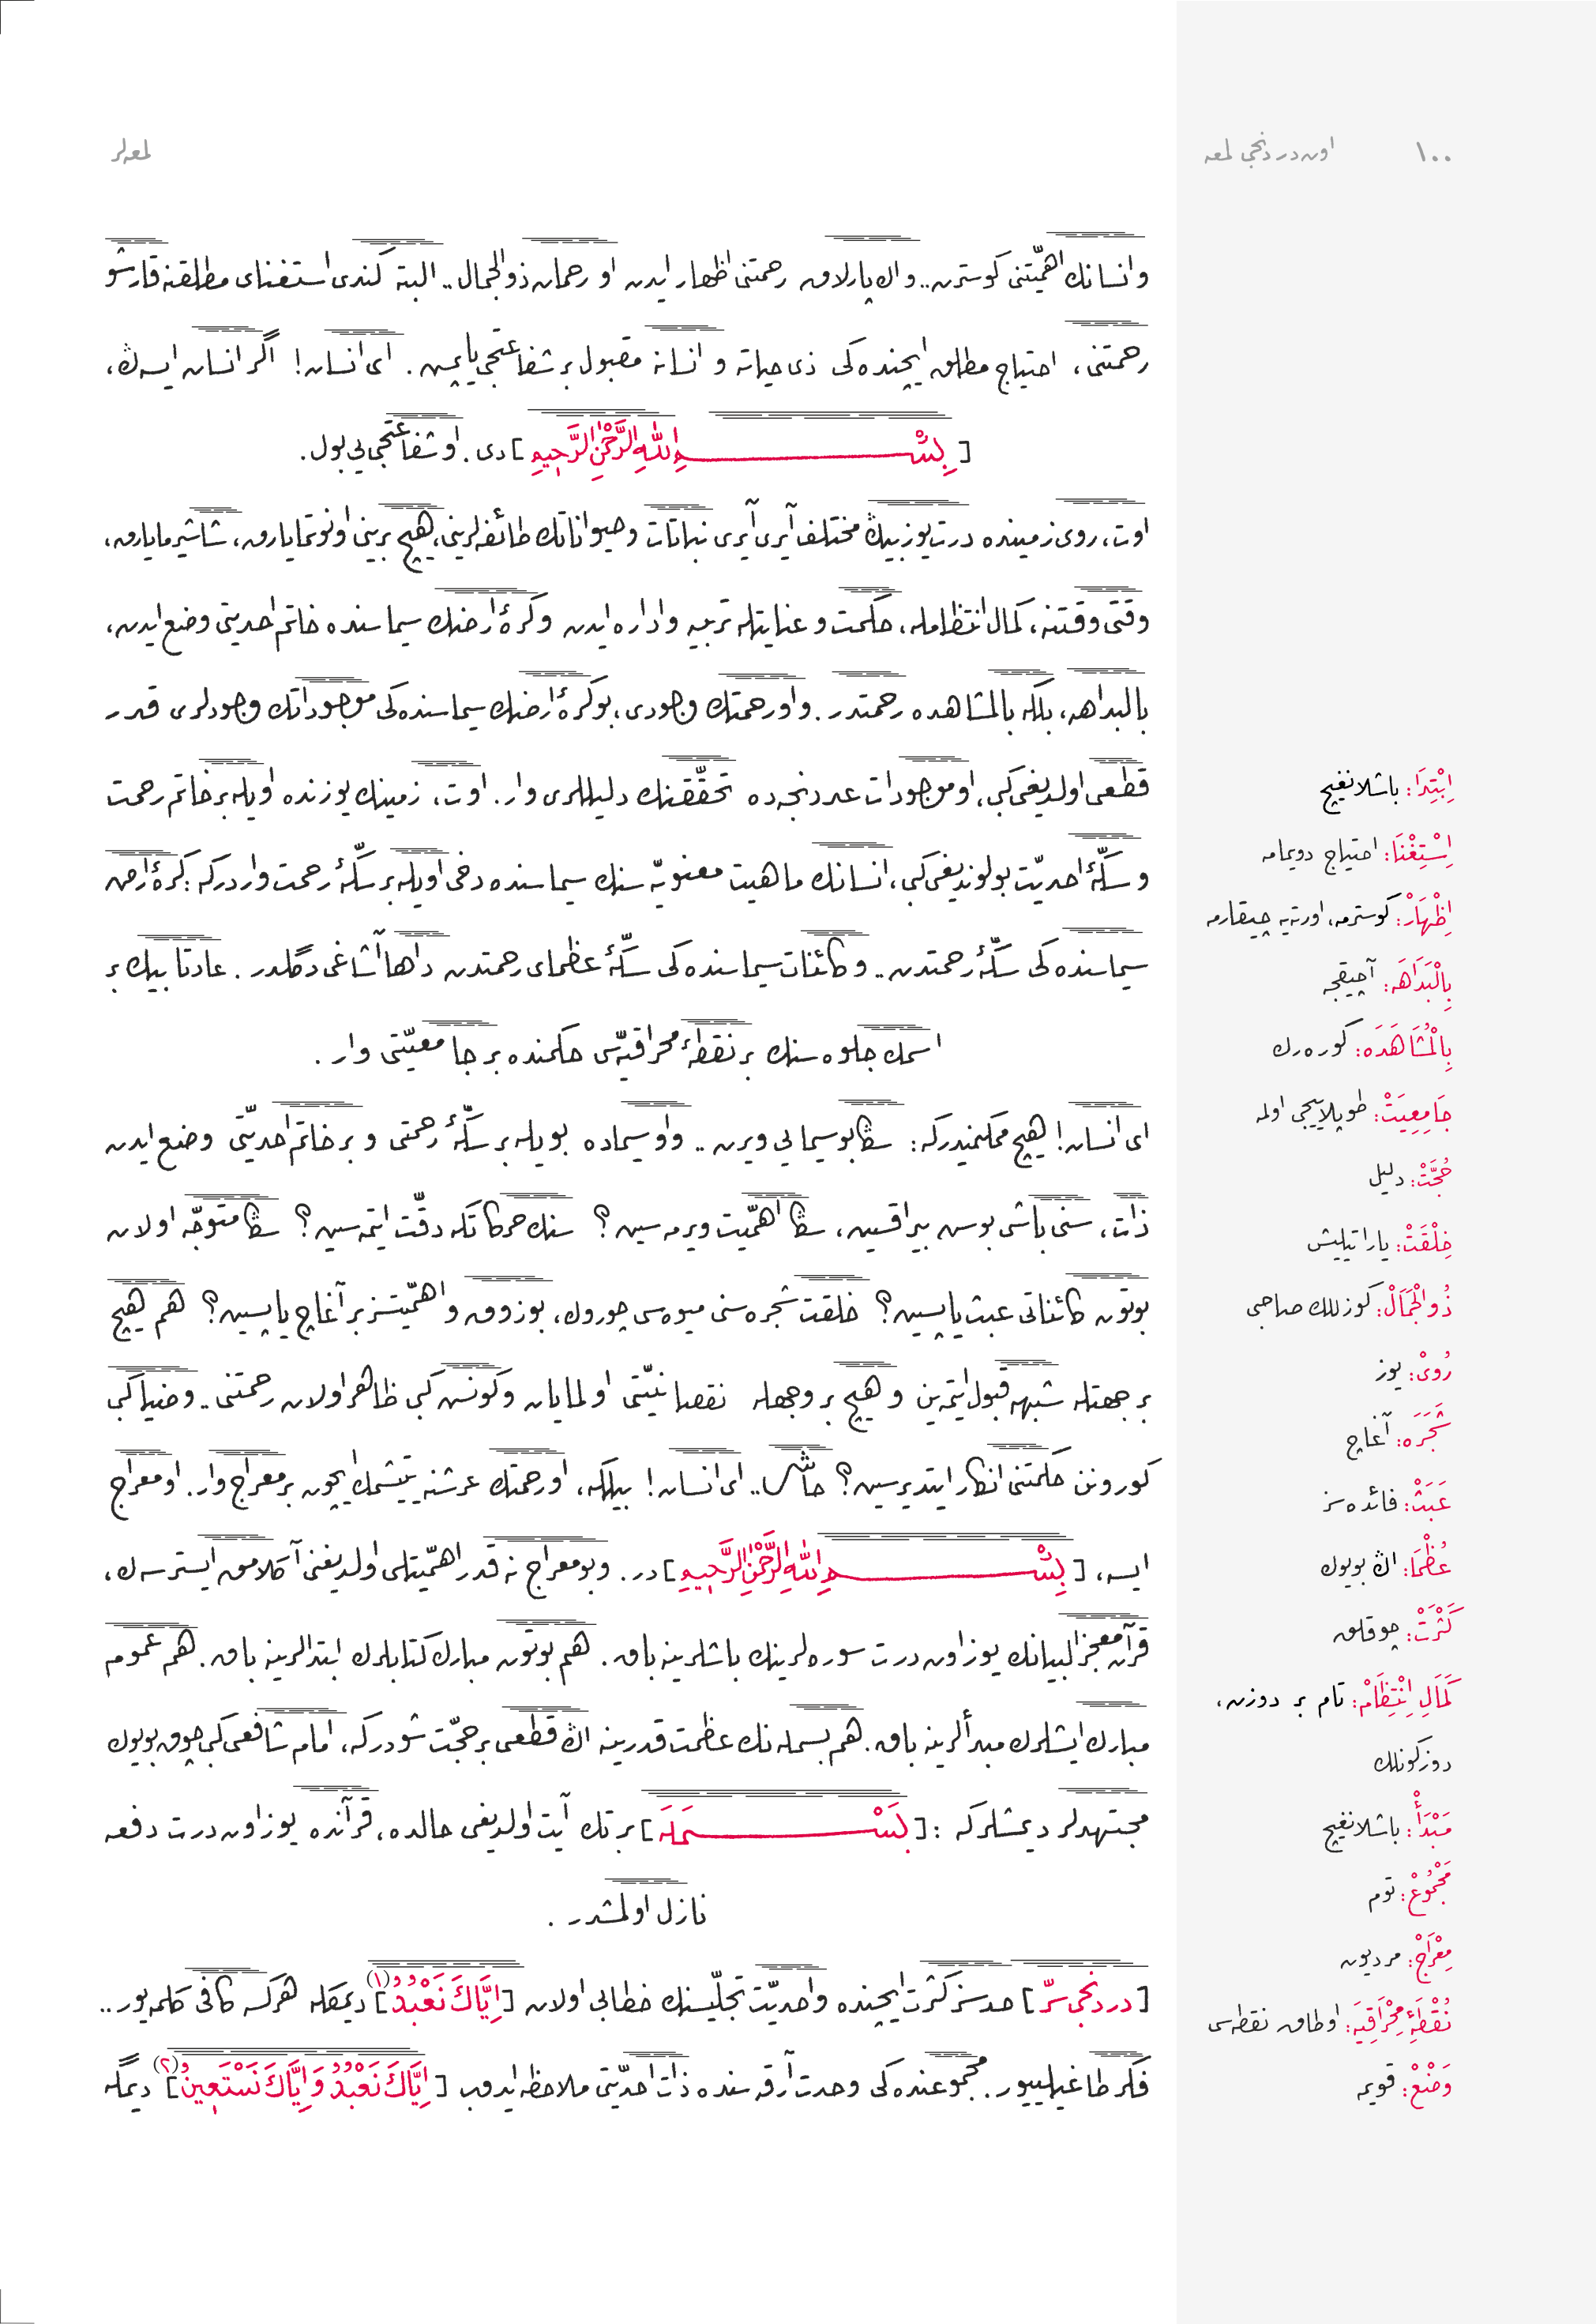 ١٠٠
اون دردنجی لمعه
لمعه لر
وانسانك اهمیّتنی كوسترن.. و اڭ پارلاق رحمتنی اظهار ایدن او رحمان ذوالجمال.. البته كندی استغنای مطلقنه قارشو
رحمتنی، احتیاج مطلق ایچنده كی ذی حیاته و انسانه مقبول بر شفاعتجی یاپمش. ای انسان! اگر انسان ایسه ڭ،
[بِسْمِ اللّٰهِ الرَّحْمٰنِ الرَّحِيمِ] دی. او شفاعتجی یی بول.
اوت، روی زمینده درت یوز بیڭ مختلف آیری آیری نباتات و حیواناتك طائفه لرینی، هیچ برینی اونوتمایارق، شاشیرمایارق،
وقتی وقتنه، كمال انتظامله، حكمت و عنایتله تربیه و اداره ایدن و كرۀ ارضك سیماسنده خاتم احدیتی وضع ایدن،
بالبداهه، بلكه بالمشاهده رحمتدر. و او رحمتك وجودی، بو كرۀ ارضك سیماسنده كی موجوداتك وجودلری قدر
قطعی اولدیغی كبی، او موجودات عددنجه ده تحقّقنك دلیللری وار. اوت، زمینك یوزنده اویله بر خاتم رحمت
و سكّۀ احدیّت بولوندیغی كبی، انسانك ماهیت معنویّه سنك سیماسنده دخی اویله بر سكّۀ رحمت واردركه: كرۀ ارض
سیماسنده كی سكّۀ رحمتدن.. و كائنات سیماسنده كی سكّۀ عظمای رحمتدن داها آشاغی دگلدر. عادتا بیڭ بر
اسمك جلوه سنك بر نقطۀ محراقیّه سی حكمنده بر جامعیّتی وار.
ای انسان! هیچ ممكنمیدركه: سڭا بو سیمایی ویرن.. و او سیماده بویله بر سكّۀ رحمتی و بر خاتم احدیّتی وضع ایدن
ذات، سنی باشی بوش بیراقسین، سڭا اهمّیت ویرمه سین؟ سنك حركاتكه دقّت ایتمه سین؟ سڭا متوجّه اولان
بوتون كائناتی عبث یاپسین؟ خلقت شجره سنی میوه سی چوروك، بوزوق و اهمّیتسز بر آغاچ یاپسین؟ هم هیچ
بر جهتله شبهه قبول ایتمه ین و هیچ بر وجهله نقصانیّتی اولمایان و كونش كبی ظاهر اولان رحمتنی.. و ضیا كبی
كورونن حكمتنی انكار ایتدیرسین؟ حاشا.. ای انسان! بیلكه، او رحمتك عرشنه یتیشمك ایچون بر معراج وار. او معراج
ایسه، [بِسْمِ اللّٰهِ الرَّحْمٰنِ الرَّحِيمِ] در. و بو معراج نه قدر اهمّیتلی اولدیغنی آڭلامق ایسترسه ڭ،
قرآن معجز البیانك یوز اون درت سوره لرینك باشلرینه باق. هم بوتون مبارك كتابلرك ابتدالرینه باق. هم عموم
مبارك ایشلرك مبدألرینه باق. هم بسمله نك عظمت قدرینه اڭ قطعی بر حجّت شودركه، امام شافعی كبی چوق بویوك
مجتهدلر دیمشلركه: [بَسْمَلَه] بر تك آیت اولدیغی حالده، قرآنده یوز اون درت دفعه
نازل اولمشدر.
[دردنجی سرّ] حدسز كثرت ایچنده واحدیّت تجلّیسنك خطابی اولان [اِيَّاكَ نَعْبُدُ] (١) دیمكله هركسه كافی كلمه یور..
فكر طاغیلییور. مجموعنده كی وحدت آرقه سنده ذات احدیّتی ملاحظه ایدوب [اِيَّاكَ نَعْبُدُ وَاِيَّاكَ نَسْتَعِينُ] (٢) دیمگه
اِبْتِدَا: باشلانغیچ
اِسْتِغْنَا: احتیاج دویمامه
اِظْهَارْ: كوسترمه، اورته یه چیقارمه
بِالْبَدَاهَه: آچیقجه
بِالْمُشَاهَدَه: كوره رك
جَامِعِيَتْ: طوپلاییجی اولمه
حُجَّتْ: دلیل
خِلْقَتْ: یاراتیلیش
ذُوالْجَمَالْ: كوزللك صاحبی
رُویْ: یوز
شَجَرَه: آغاچ
عَبَثْ: فائده سز
عُظْمَا: اڭ بویوك
كَثْرَتْ: چوقلق
كَمَالِ اِنْتِظَامْ: تام بر دوزن،
دوزكونلك
مَبْدَأْ: باشلانغیچ
مَجْمُوعْ: توم
مِعْرَاجْ: مردیون
نُقْطَۀِ مِحْرَاقِيَه: اوداق نقطه سی
وَضْعْ: قویمه